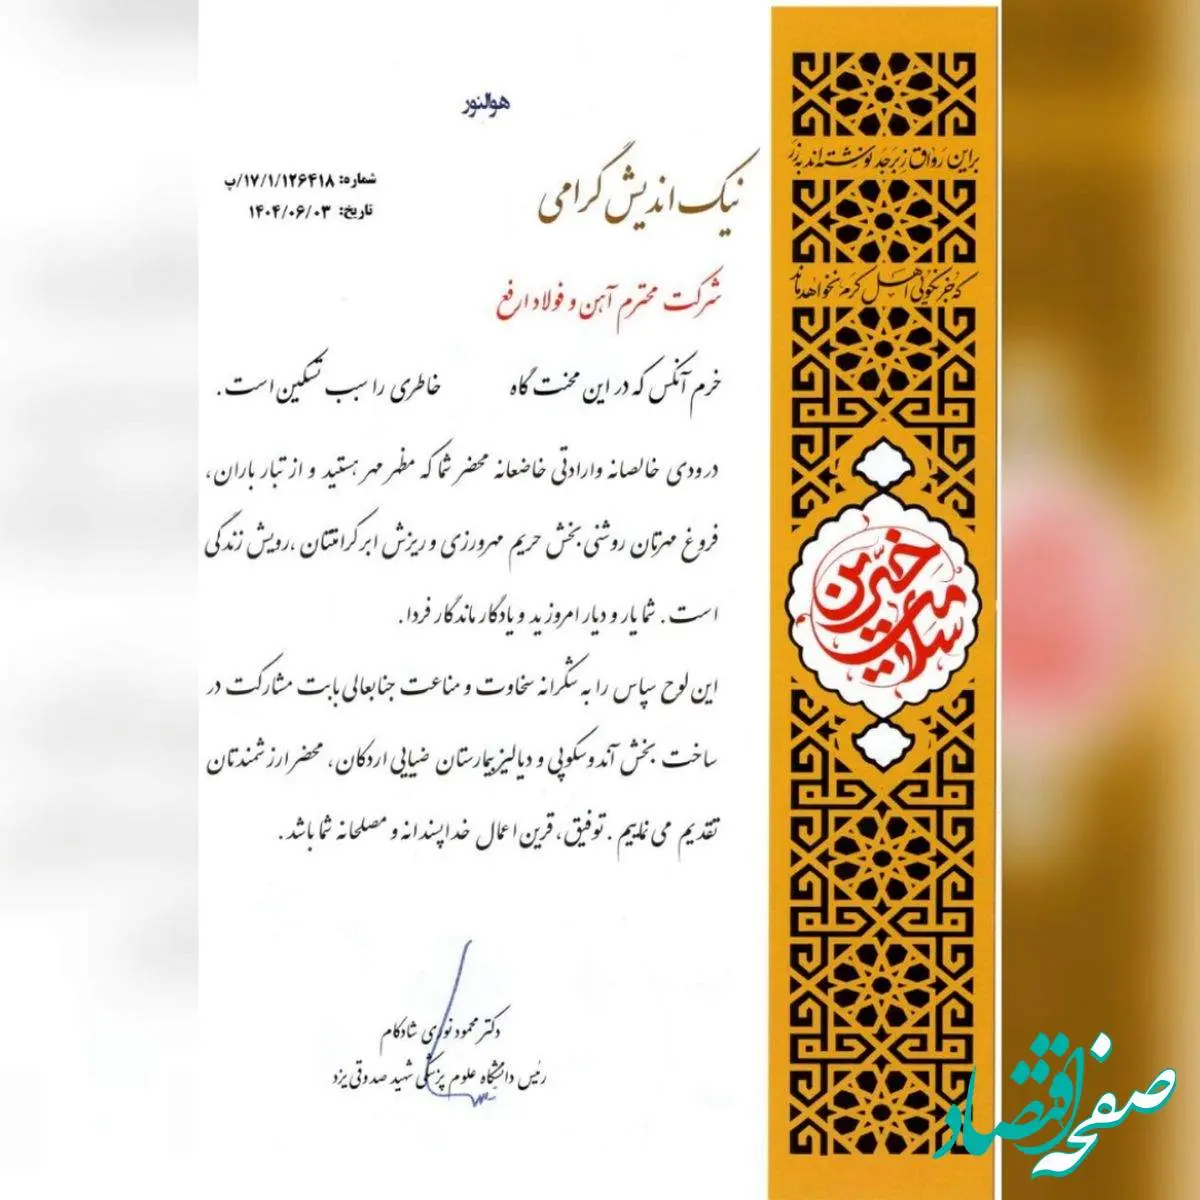 هوالنور
شماره: ۱۷/۱/۱۲۶۴۱۸/پ
تاریخ: ۱۴۰۴/۰۶/۰۳
نیک اندیش گرامی
شرکت محترم آهن و فولاد ارفع
خرم آنکس که در این محنت گاه خاطری را سبب تسکین است.
درودی خالصانه وارادتی خاضعانه محضر شما که مظهر مهر هستید و از تبار باران،
فروغ مهرتان روشنی بخش حریم مهرورزی و ریزش ابر کرامتتان، رویش زندگی
است. شما یار و دیار امروزید و یادگار ماندگار فردا.
این لوح سپاس را به شکرانه سخاوت و مناعت جنابعالی بابت مشارکت در
ساخت بخش آندوسکوپی و دیالیز بیمارستان ضیایی اردکان، محضر ارزشمندتان
تقدیم می نماییم. توفیق، قرین اعمال خداپسندانه و مصلحانه شما باشد.
دکتر محمود نوری شادکام
رئیس دانشگاه علوم پزشکی شهید صدوقی یزد
براین رواق زبرجد نوشته اند به زر
که جز نکویی اهل کرم نخواهد ماند
خیرین
سلامت
صفحه اقتصاد